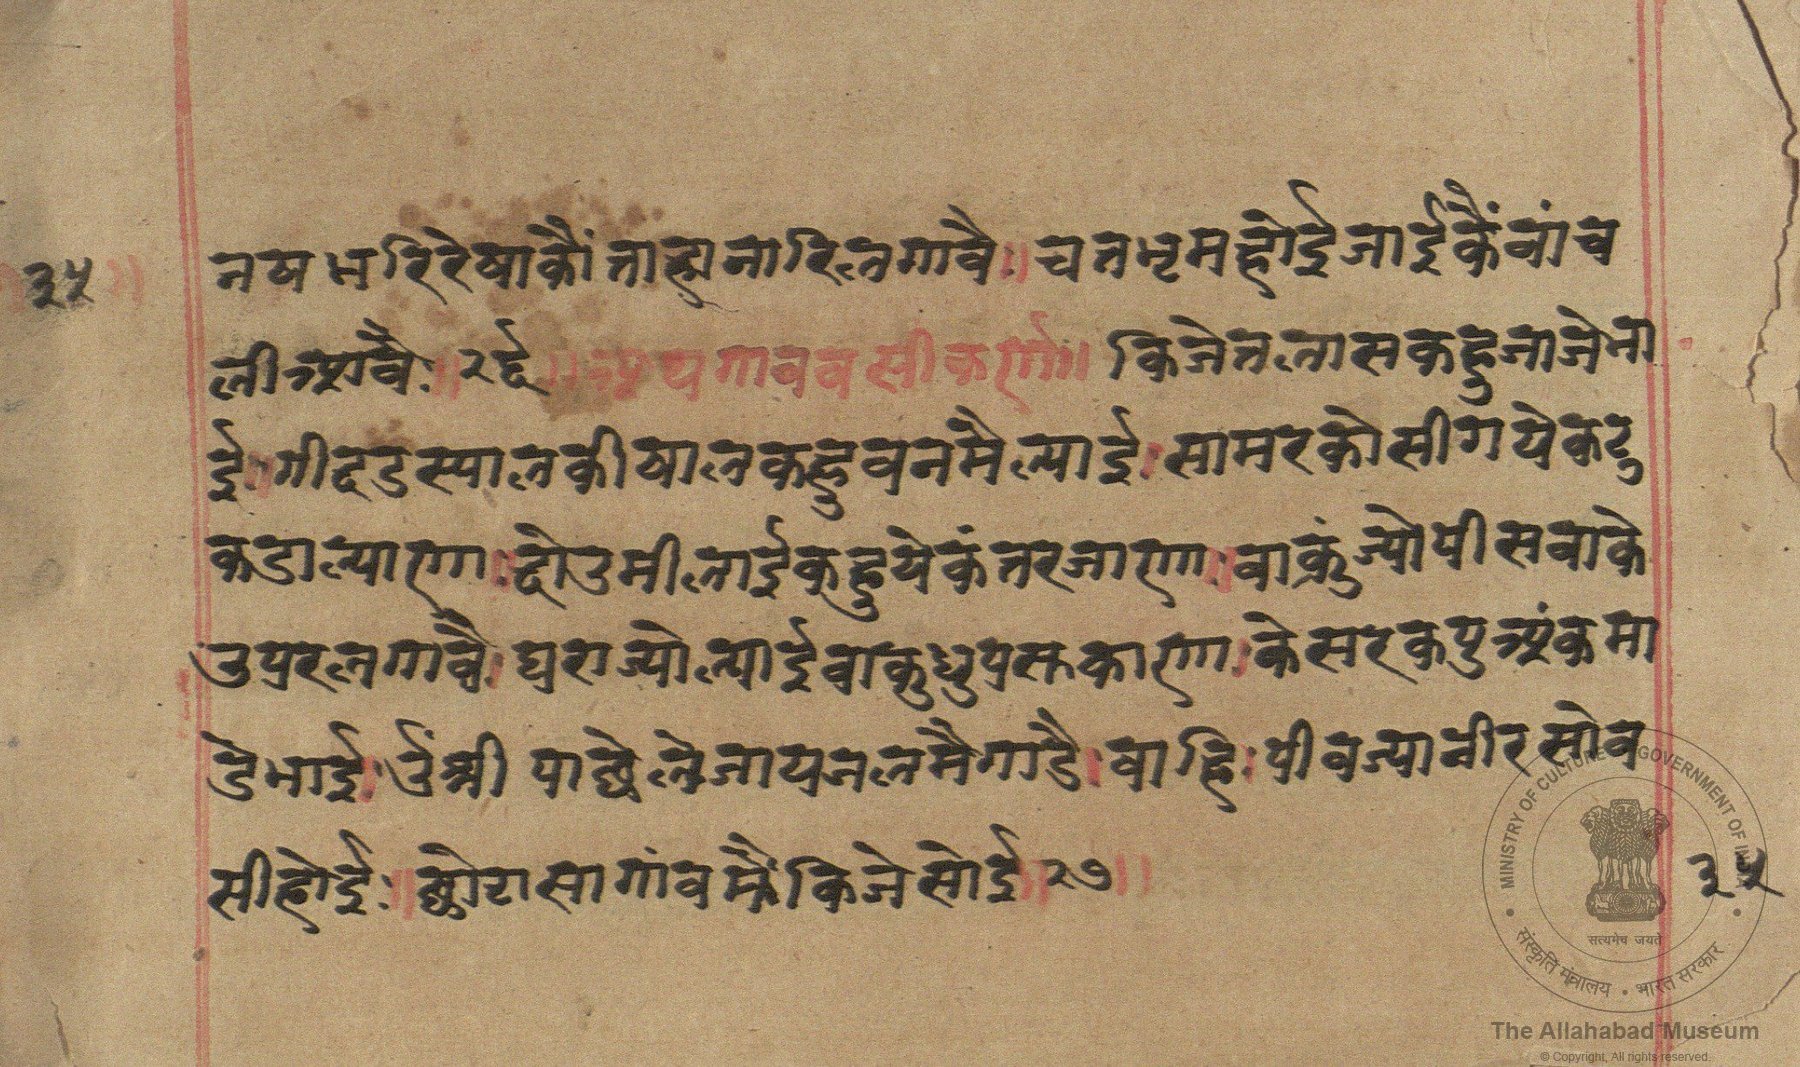 ३५
नयषभरिरेषाकौं ताहा नारिलगावै ॥ चतभृमहोई जाई कैं वांच
ली आवै : ॥ २६ ॥ अथ गाव वसीकर्ण ॥ किजे तलास कहु जाजे ना
ई : गीदड स्याल की षाल कहु वन मै ल्याई : सामर को सीग येक टु
कडा ल्याएगा : दोउ मीलाई कहु ये कंतर जाएगा : वाकुं ज्यो पीस वाके
उपर लगावै : घरा ज्यो ल्याई वाकु धुप्र स्त काएगा : केसर कपु अंक मा
डे भाई : उंश्री पाछे ले जाय जल मै गाडै : वाहि : पीव ज्या नीर सो व
सी होई : ॥ छोटा सा गांव मैं किजे सोई ॥ २७ ॥
३५
MINISTRY OF CULTURE GOVERNMENT OF INDIA
सत्यमेव जयते
संस्कृति मंत्रालय • भारत सरकार
The Allahabad Museum
© Copyright, All rights reserved.